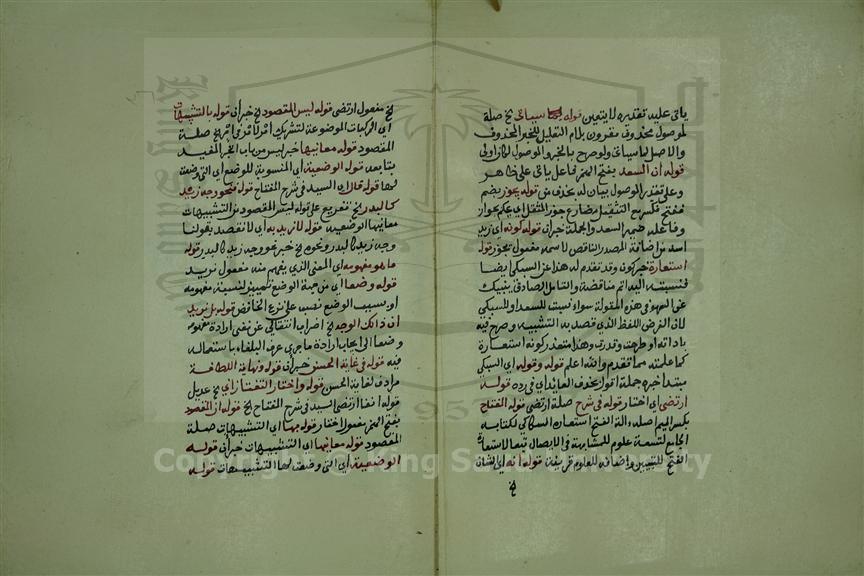 ياتى عليه تقديره لا يتعين قوله بما سياتى الخ صلة
لموصول محذوف مقرون بلام التعليل للخبر المحذوف
والاصل لما سياتى ولو صرح بالخبر والموصول لكان اولى
قوله ان السعد بفتح الهمز فاعل ياتى على ظاهر
وعلى تقدير الموصول بيان له بحذف من قوله يجوز بضم
ففتح فكسر مع التثقيل مضارع جوز المثقل اى يحكم بجواز
وفاعله ضمير السعد والجملة خبر ان قوله كونه اى زيد
اسد من اضافة المصدر الناقص لاسمه مفعول يجوز قوله
استعارة خبر كون وقد تقدم له هذا عن السبكى ايضا
فنسبته اليه اثم مناقضة والتامل الصادق ينبيك
عن السهو فى هذه المقولة سواء نسبت للسعد او للسبكى
لان الفرض اللفظ الذى قصد به التشبيه وصرح فيه
باداته او طرحت وقدرت وهذا متعذر كونه استعارة
كما علمته مما تقدم والله اعلم قوله وقوله اى السبكى
مبتدا خبره جملة اقول بحذف العائد اى فى رده قوله
ارتضى اى اختار قوله فى شرح صلة ارتضى قوله المفتاح
بكسر الميم اصله الة الفتح استعاره السكاكى لكتابه
الجامع لتسعة علوم للمشابهة فى الايصال تبعا لاستعارة
الفتح للتبيين واضافته للعلوم قرينة قوله انه اى الشان
الخ
الخ مفعول ارتضى قوله ليس المقصود الخ خبر ان قوله بالتشبيهات
اى المركبات الموضوعة لتشريك امر لامر فى امر الخ صلة
المقصود قوله معانيها خبر ليس من باب الخبر المفيد
بتابعه قوله الوضعية اى المنسوبة للوضع اى التى وضعت
لها قوله قال اى السيد فى شرح المفتاح قوله فنحو وجه زيد
كالبدر الخ تفريع على قوله ليس المقصود من التشبيهات
معانيها الوضعية قوله لا نريد به اى لا نقصد بقولنا
وجه زيد كالبدر ونحوه الخ خبر نحو وجه زيد كالبدر قوله
ما هو مفهومه اى المعنى الذى يفهم منه مفعول نريد
قوله وضعا اى من جهة الوضع تمييز لنسبة مفهومه
او بسبب الوضع نصب على نزع الخافض قوله بل نريد
ان ذلك الوجه الخ اضراب انتقالى عن نفى ارادة مفهومه
وضعا الى ايجاب ارادة ما جرى عرف البلغاء باستعماله
فيه قوله فى غاية الحسن خبر ان قوله ونهاية اللطافة
مرادف لغاية الحسن قوله واختار التفتازانى الخ عديل
قوله انفا ارتضى السيد فى شرح المفتاح الخ قوله ان المقصود
بفتح الهمز مفعول اختار قوله بها اى التشبيهات صلة
المقصود قوله معانيها اى التشبيهات خبر ان قوله
الوضعية اى التى وضعت لها التشبيهات قوله
Copyright © King Saud University